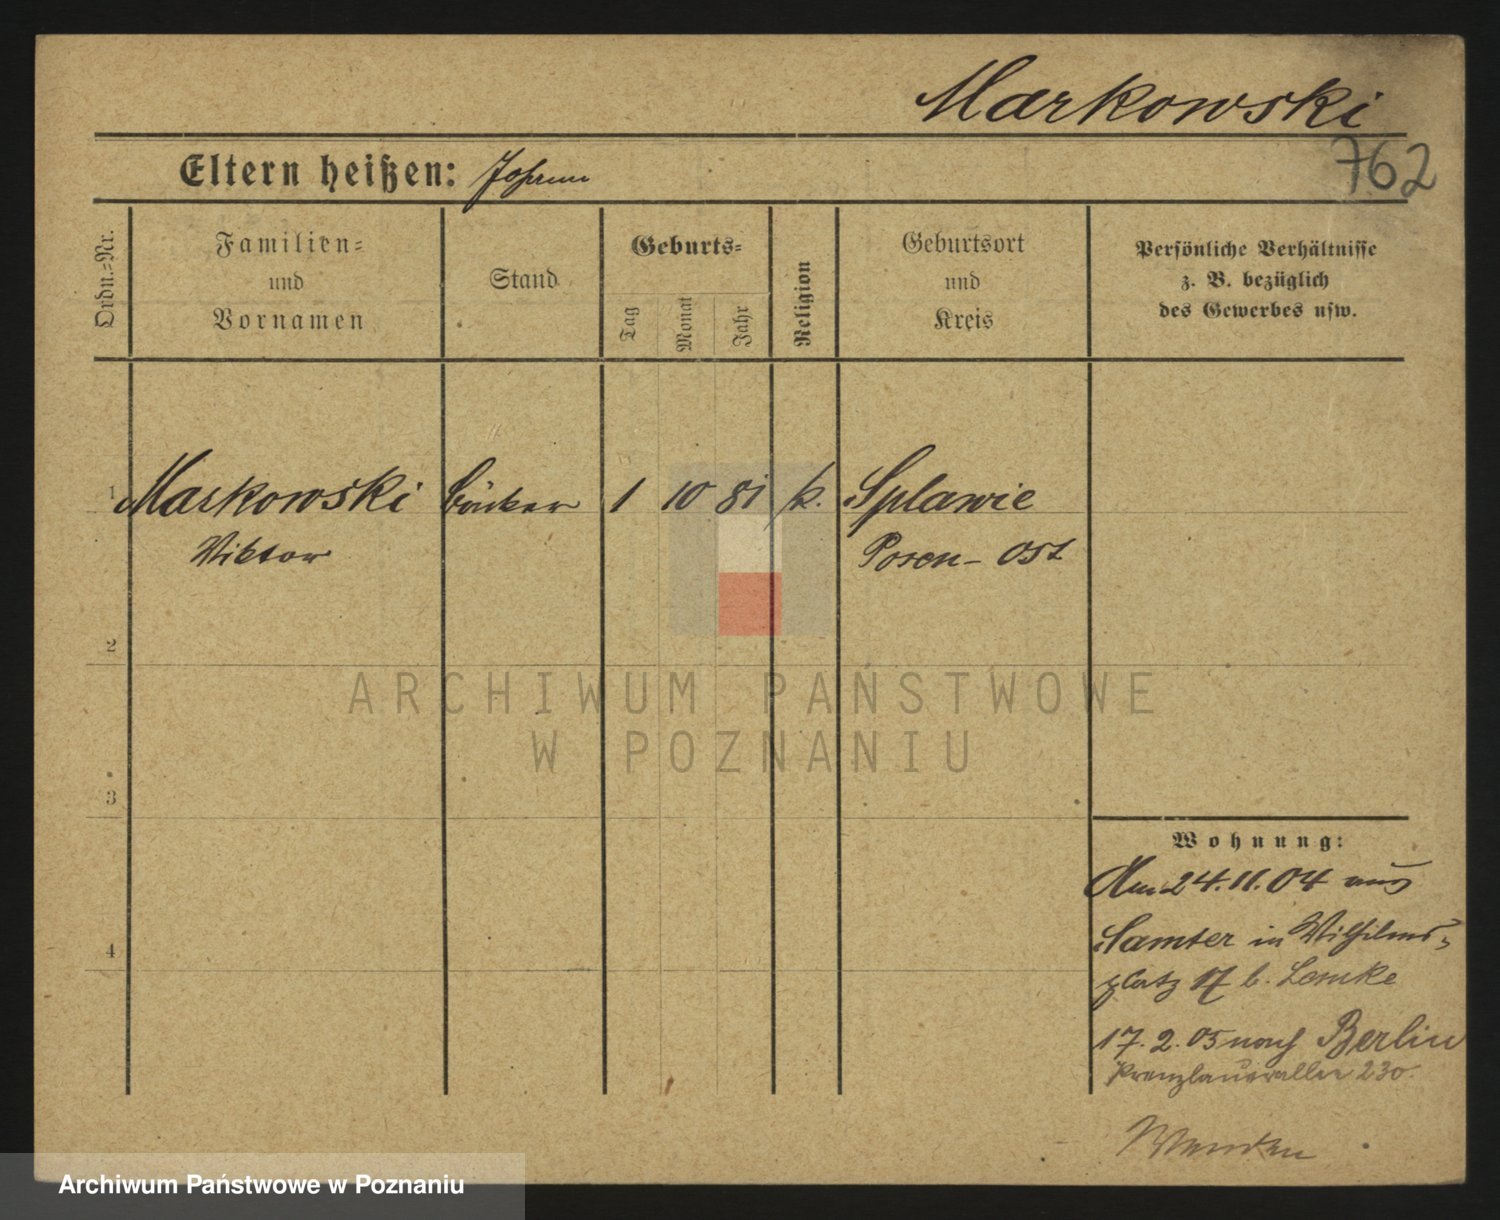 Markowski
762
Eltern heißen: Johann
Ordn.=Nr.
Familien=
und
Vornamen
Stand
Geburts=
Tag
Monat
Jahr
Religion
Geburtsort
und
Kreis
Persönliche Verhältnisse
z. B. bezüglich
des Gewerbes usw.
1 Markowski Bäcker 1 10 81 k. Splawie
Viktor Posen-Ost
2
3
4
ARCHIWUM PAŃSTWOWE
W POZNANIU
Wohnung:
Am 24.11.04 aus
Samter in Wilhelms=
platz 17 b. Lemke
17.2.05 nach Berlin
Prenzlauerallee 230.
Wenden
Archiwum Państwowe w Poznaniu